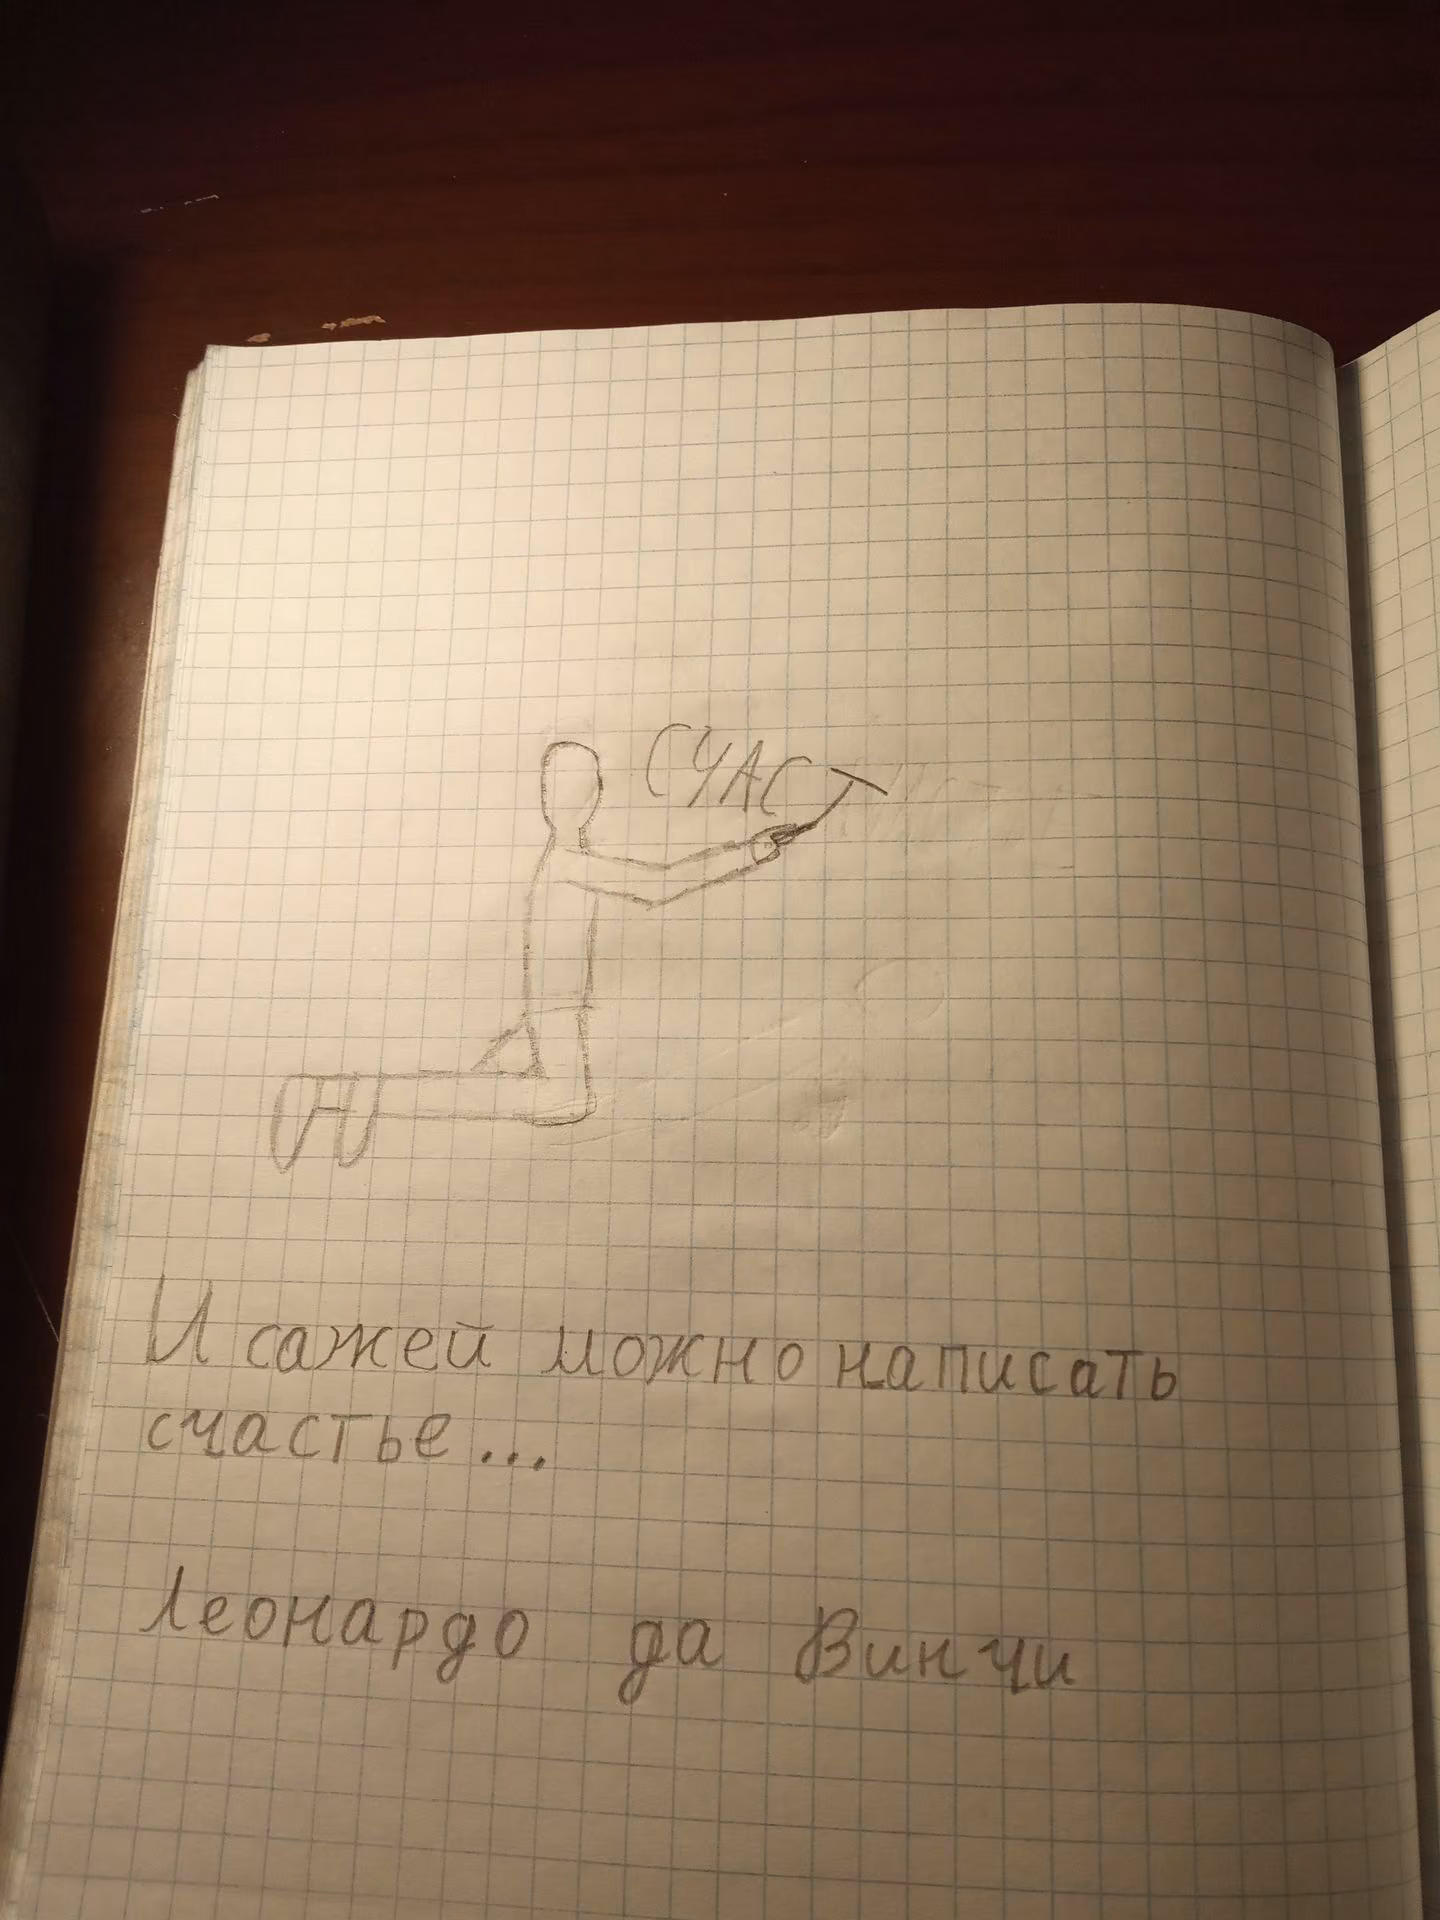 СЧАСТ
И сажей можно написать
счастье...
Леонардо да Винчи